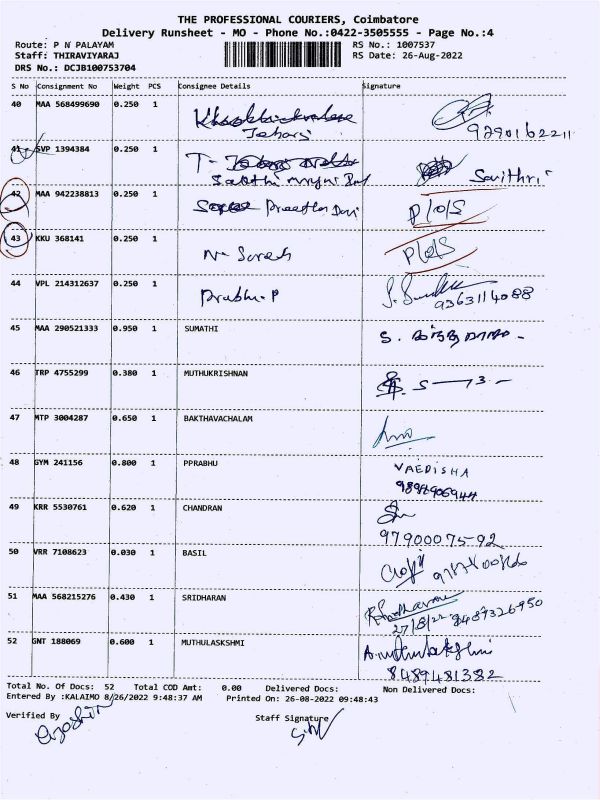 THE PROFESSIONAL COURIERS, Coimbatore
Delivery Runsheet - MO - Phone No.:0422-3505555 - Page No.:4
Route: P N PALAYAM RS No.: 1007537
Staff: THIRAVIYARAJ RS Date: 26-Aug-2022
DRS No.: DCJB100753704
S No Consignment No Weight PCS Consignee Details Signature
40 MAA 568499690 0.250 1
9290162211
41 SVP 1394384 0.250 1 Savithri
42 MAA 942238813 0.250 1 P/o/S
43 KKU 368141 0.250 1 N- Suresh P/o/S
44 VPL 214312637 0.250 1 Prabhu.P
9363114088
45 MAA 290521333 0.950 1 SUMATHI
46 TRP 4755299 0.380 1 MUTHUKRISHNAN
47 MTP 3004287 0.650 1 BAKTHAVACHALAM
48 GYM 241156 0.800 1 PPRABHU VAEDISHA
49 KRR 5530761 0.620 1 CHANDRAN
97900075-92
50 VRR 7108623 0.030 1 BASIL
51 MAA 568215276 0.430 1 SRIDHARAN
27/8/22 9487326950
52 GNT 188069 0.600 1 MUTHULASKSHMI A.muthulakshmi
8489481382
Total No. Of Docs: 52 Total COD Amt: 0.00 Delivered Docs: Non Delivered Docs:
Entered By :KALAIMO 8/26/2022 9:48:37 AM Printed On: 26-08-2022 09:48:43
Verified By Staff Signature